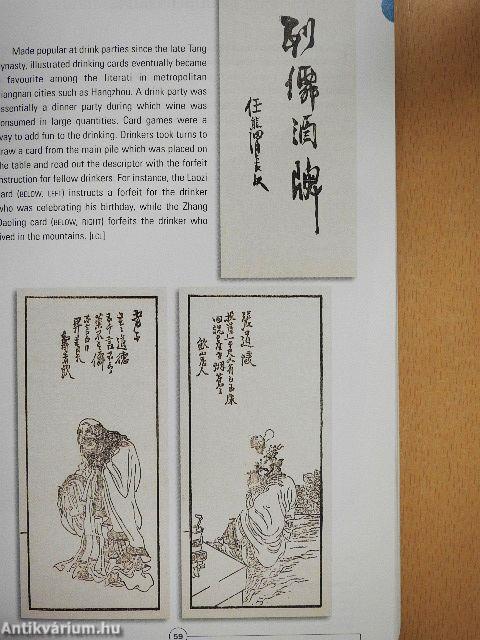 Made popular at drink parties since the late Tang
ynasty, illustrated drinking cards eventually became
favourite among the literati in metropolitan
iangnan cities such as Hangzhou. A drink party was
ssentially a dinner party during which wine was
onsumed in large quantities. Card games were a
way to add fun to the drinking. Drinkers took turns to
raw a card from the main pile which was placed on
he table and read out the descriptor with the forfeit
nstruction for fellow drinkers. For instance, the Laozi
ard (BELOW, LEFT) instructs a forfeit for the drinker
who was celebrating his birthday, while the Zhang
Daoling card (BELOW, RIGHT) forfeits the drinker who
ived in the mountains. [LCL]
列僊酒牌
任熊渭長
老子
張道陵
飲山居人
59
Antikvárium.hu